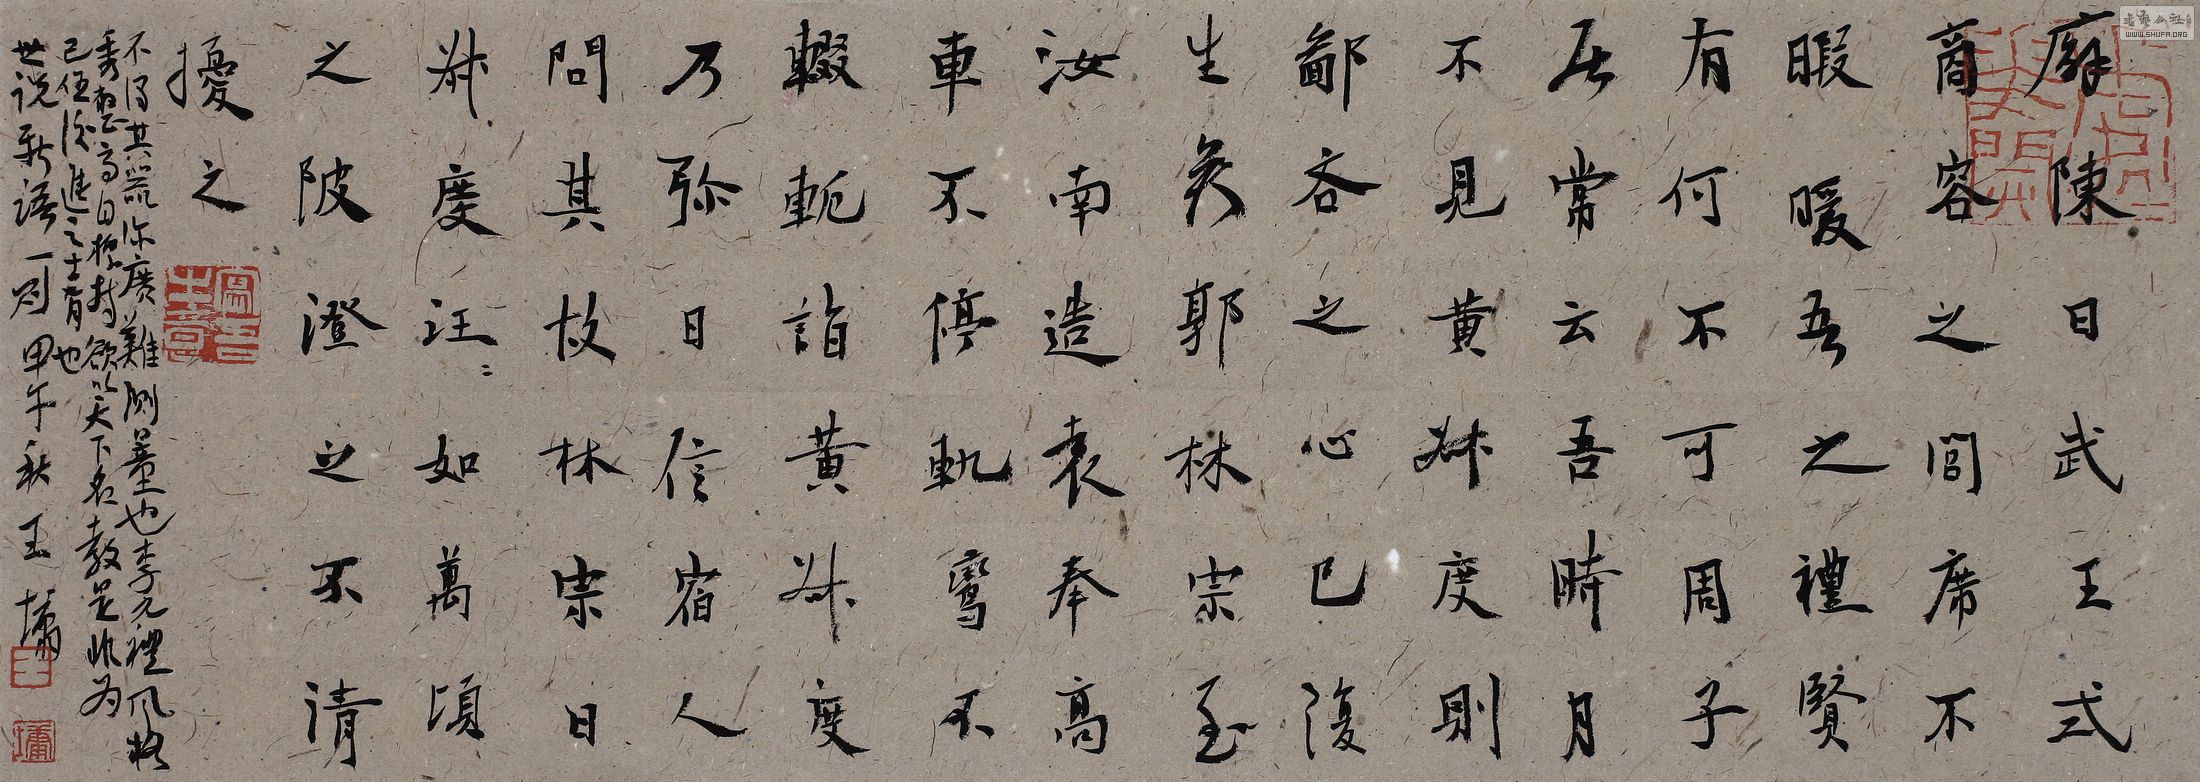 廨陳曰武王式
商容之閭席不
暇暖吾之禮賢
有何不可周子
居常云吾時月
不見黄叔度則
鄙吝之心已復
生矣郭林宗至
汝南造袁奉高
車不停軌鸞不
輟軛詣黄叔度
乃弥日信宿人
問其故林宗曰
叔度汪〻如萬頃
之陂澄之不清
擾之
不得其器深廣難測量也李元禮風格
秀整高自標持欲以天下名教是非為
己任後進之士有也
世説新語一則甲午秋王墉
書藝公社
WWW.SHUFA.ORG